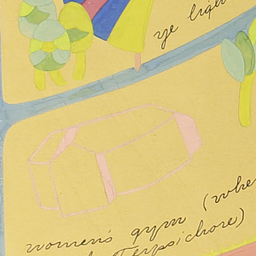 ye
women's gym (whe
Terpsichore)